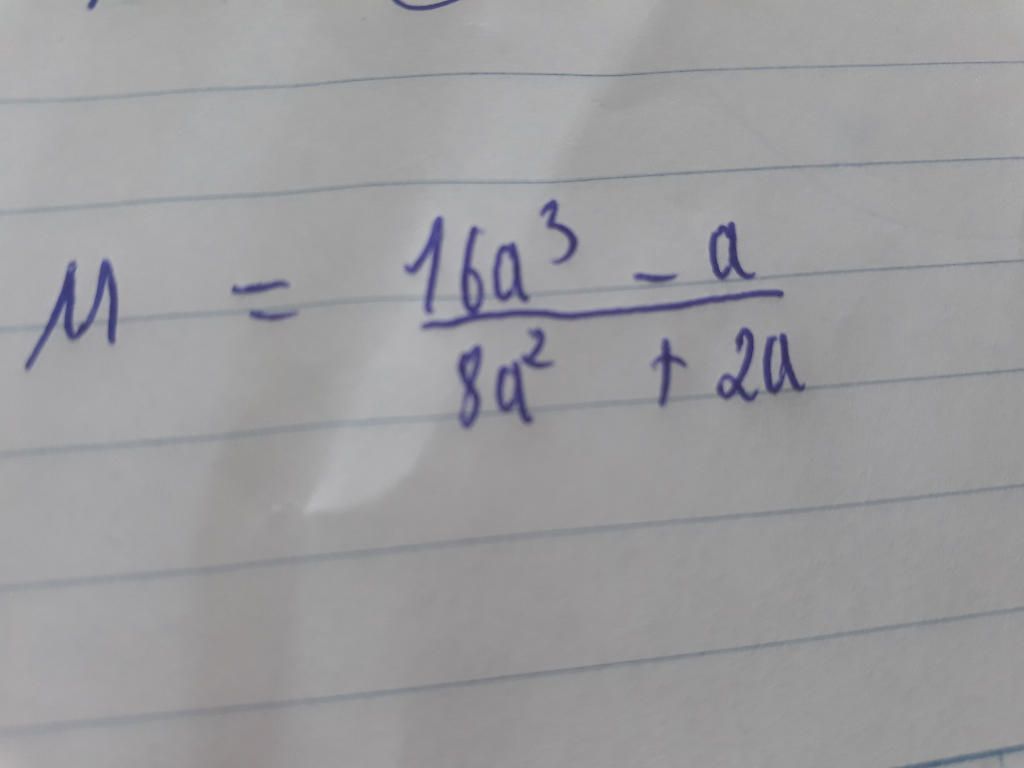 M = 16a³ - a
8a² + 2a